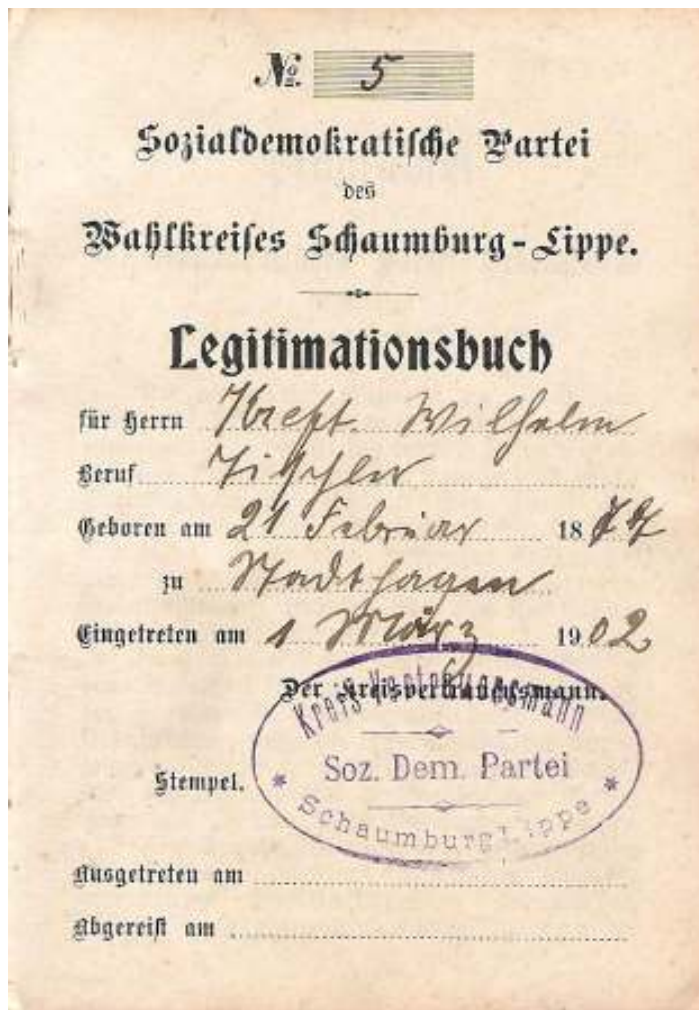 No. 5
Sozialdemokratische Partei
des
Wahlkreises Schaumburg-Lippe.
Legitimationsbuch
für Herrn Kreft. Wilhelm
Beruf Tischler
Geboren am 21 Februar 18
zu Stadthagen
Eingetreten am 1 März 1902
Der Kreisvertrauensmann.
Kreis Vertrauensmann
Stempel. Soz. Dem. Partei
* Schaumburg Lippe *
Ausgetreten am
Abgereist am